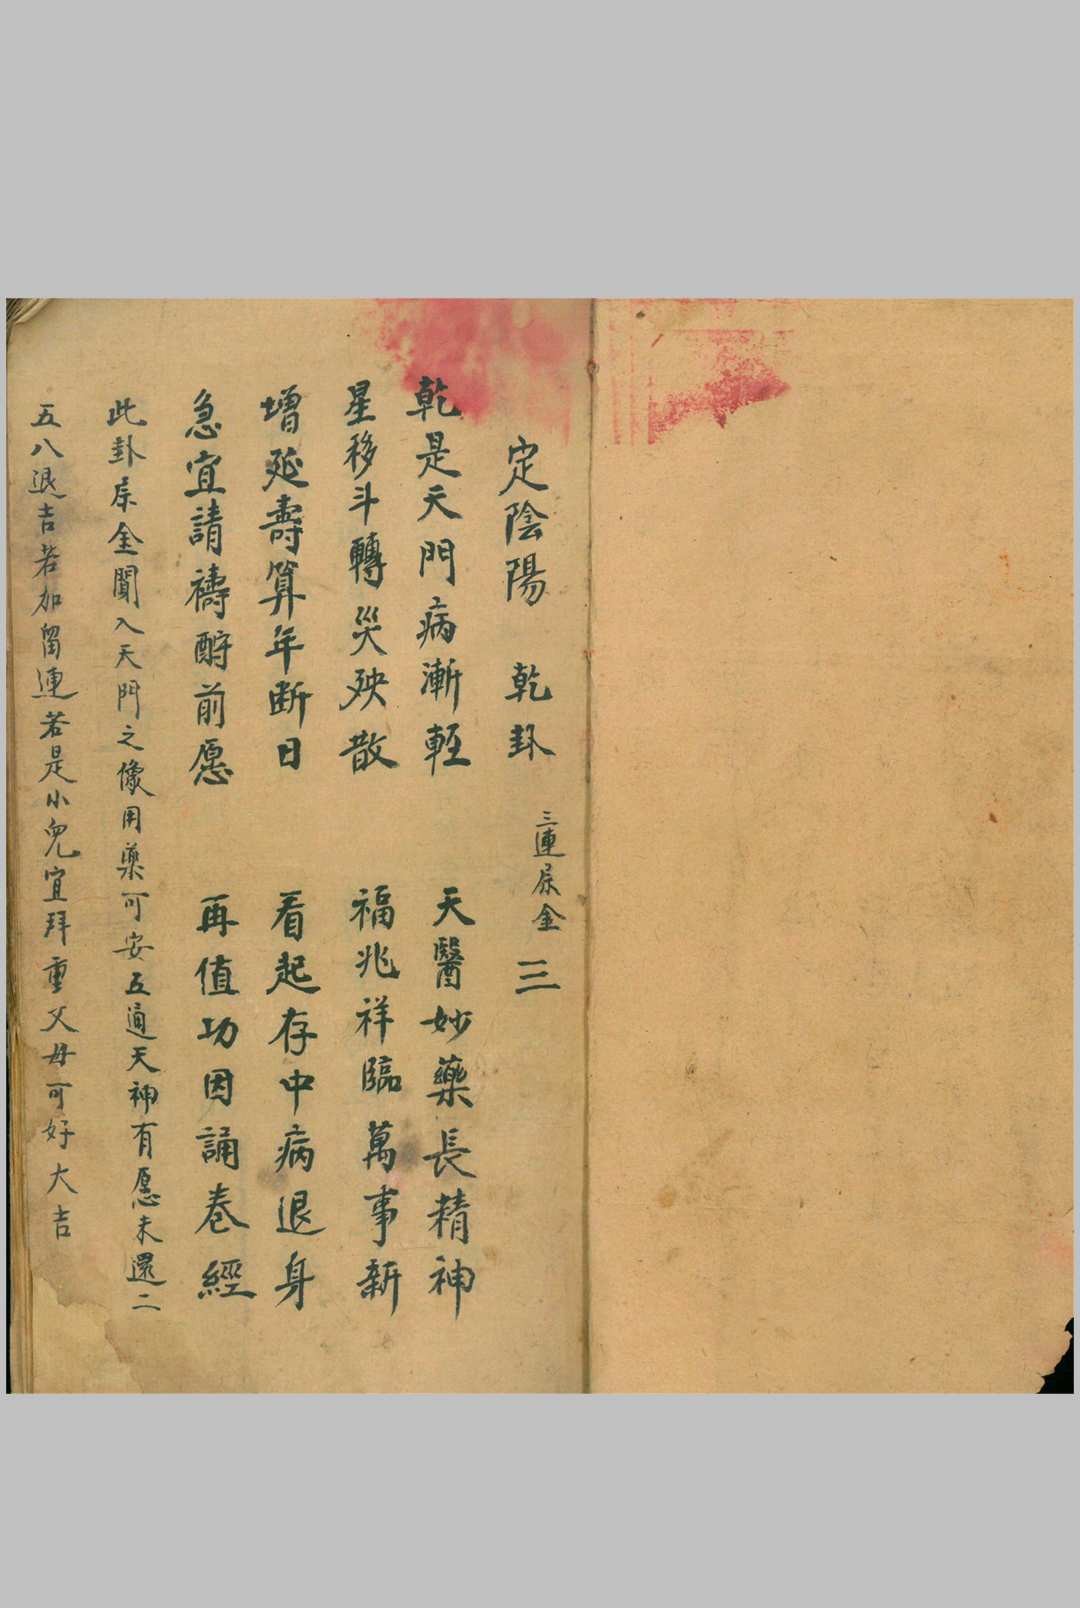 定陰陽 乾卦 三連屬金 ☰
乾是天門病漸輕 天醫妙藥長精神
星移斗轉災殃散 福兆祥臨萬事新
增延壽算年斷日 看起存中病退身
急宜請禱酧前愿 再值功因誦卷經
此卦屬金聞入天門之像用藥可安五通天神有愿未還二
五八退吉若加留連若是小兒宜拜重父母可好大吉